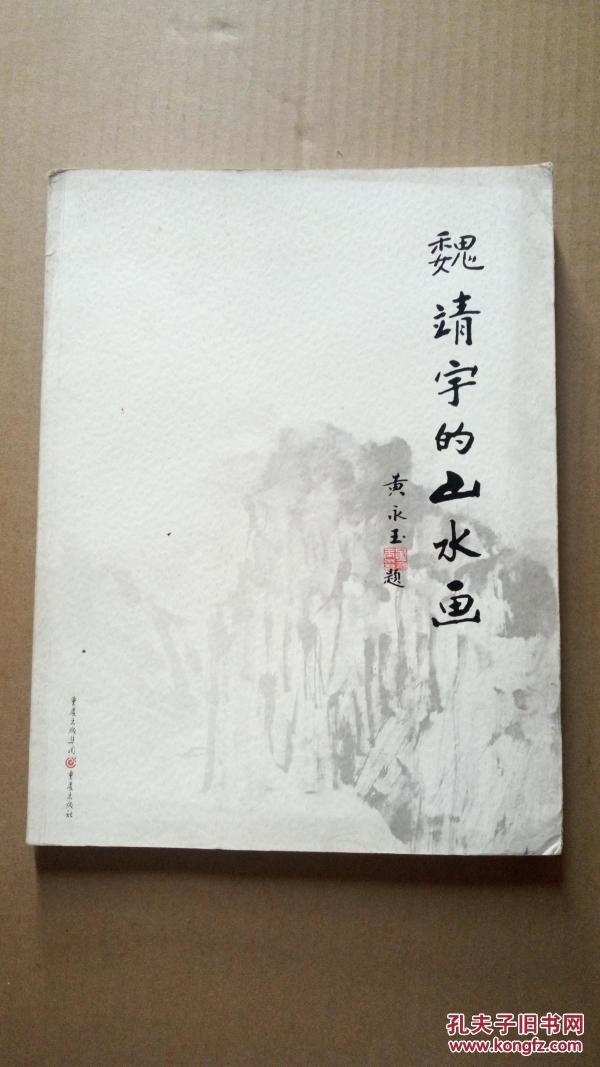 魏靖宇的山水画
黄永玉题
重庆出版集团 重庆出版社
孔夫子旧书网
www.kongfz.com